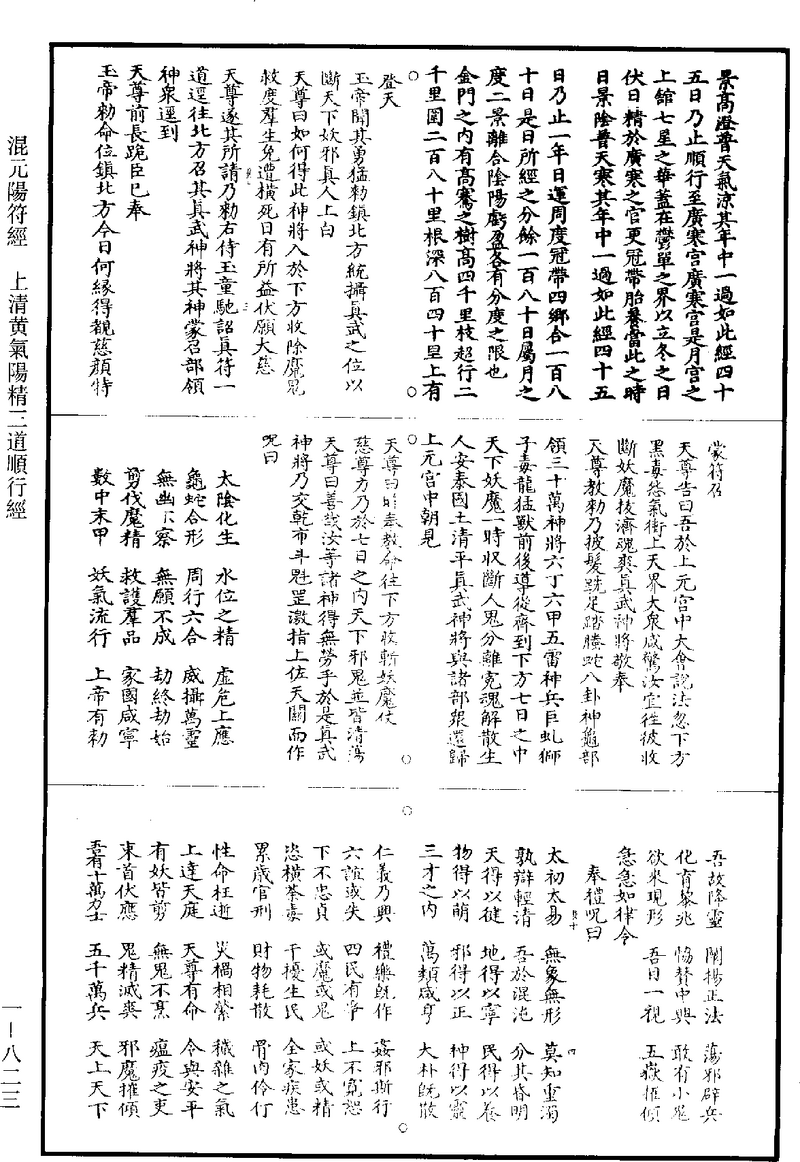 景高澄普天氣涼其年中一過如此經四十
五日乃止順行至廣寒宮廣寒宮是月宮之
上館七星之華蓋在鬱單之界以立冬之日
伏日精於廣寒之官更冠帶胎暴當此之時
日景陰普天寒其年中一過如此經四十五
日乃止一年日運周度冠帶四鄉合一百八
十日是日所經之分餘一百八十日屬月之
度二景離合陰陽虧盈各有分度之限也
金門之内有高騫之樹高四千里枝超行二
千里圍二百八十里根深八百四十里上有
登天
玉帝聞其勇猛勑鎮北方統攝真武之位以
斷天下妖邪真人上白
天尊曰如何得此神將入於下方收除魔鬼
救度羣生免遭橫死日有所益伏願大慈
天尊遂其所請乃勑右侍玉童馳詔真符一
道逕往北方召其真武神將其神蒙召部領
神衆逕到
天尊前長跪臣已奉
玉帝勑命位鎮北方今日何緣得觀慈顏特
蒙符召
天尊告曰吾於上元宮中大會說法忽下方
黑毒惡氣衝上天界大衆咸驚汝宜往彼收
斷妖魔拔濟魂爽真武神將敬奉
天尊教勑乃披髮跣足踏螣蛇八卦神龜部
領三十萬神將六丁六甲五雷神兵巨虬獅
子毒龍猛獸前後導從齊到下方七日之中
天下妖魔一時收斷人鬼分離冤魂解散生
人安泰國土清平真武神將與諸部衆還歸
上元宮中朝見
天尊曰昨奉教命往下方收斬妖魔仗
慈尊力乃於七日之内天下邪鬼並皆清蕩
天尊曰善哉汝等諸神得無勞乎於是真武
神將乃交乾布斗魁罡激指上佐天關而作
呪曰
太陰化生 水位之精 虛危上應
龜蛇合形 周行六合 威攝萬靈
無幽不察 無願不成 劫終劫始
剪伐魔精 救護羣品 家國咸寧
數中末甲 妖氣流行 上帝有勑
吾故降靈 闡揚正法 蕩邪辟兵
化育黎兆 協贊中興 敢有小鬼
欲來現形 吾目一視 五嶽摧傾
急急如律令
奉禮呪曰
太初太易 無象無形 莫知重濁
孰辯輕清 吾於混沌 分其昏明
天得以健 地得以寧 民得以養
物得以萌 邪得以正 神得以靈
三才之内 萬類咸亨 大朴既散
仁義乃興 禮樂既作 姦邪斯行
六誼或失 四民有爭 上不寬恕
下不忠貞 或魔或鬼 或妖或精
恣橫荼毒 干擾生民 全家疾患
累歲官刑 財物耗散 骨肉伶仃
性命枉逝 災禍相縈 穢雜之氣
上達天庭 天尊有命 令與安平
有妖皆剪 無鬼不烹 瘟疫之吏
束首伏應 鬼精滅爽 邪魔摧傾
吾有十萬力士 五千萬兵 天上天下
混元陽符經 上清黄氣陽精三道順行經
一—八二三